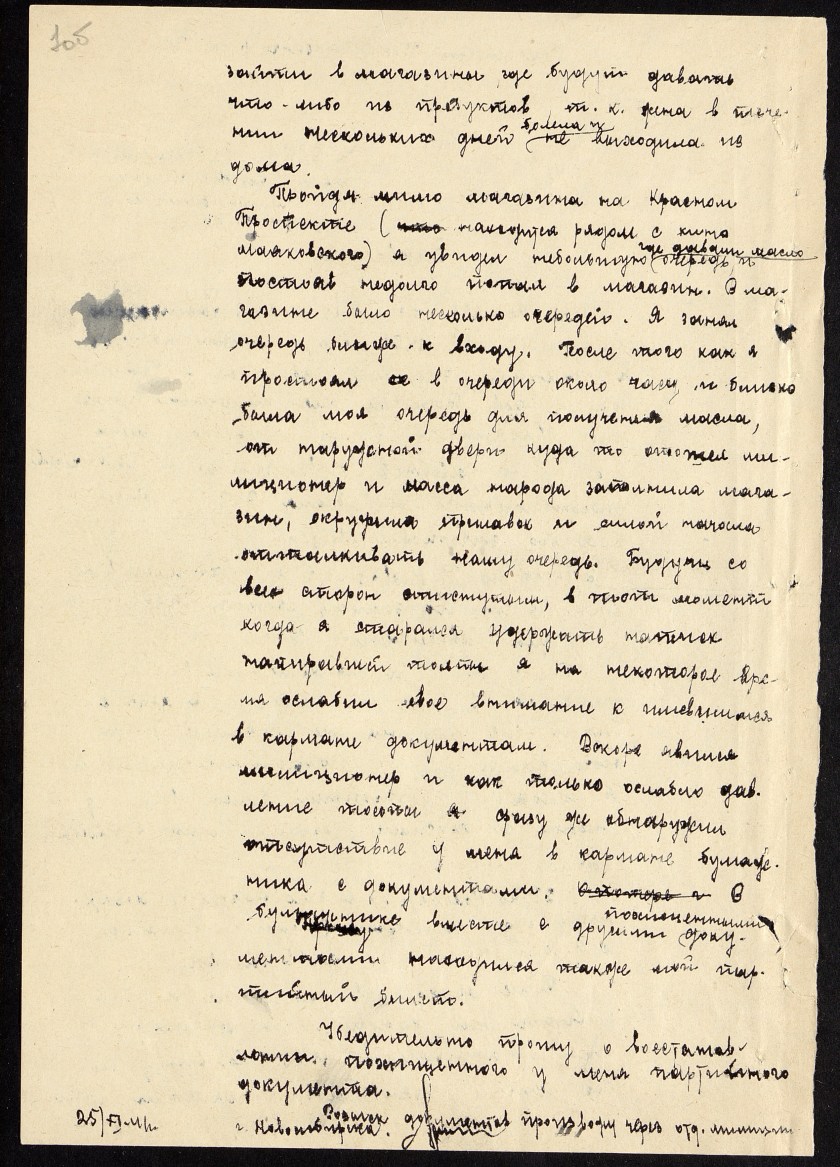 105
зайти в магазины где будут давать
что-либо из продуктов, т.к. жена в тече-
нии нескольких дней болела и не выходила из
дома.
Пройдя мимо магазина на Красном
Проспекте (что находится рядом с кино
Маяковского) я увидел небольшую очередь, где давали масло и
постояв недолго попал в магазин. В ма-
газине было несколько очередей. Я занял
очередь ближе к входу. После того как я
простоял в очереди около часу и близко
была моя очередь для получения масла,
от наружной двери куда то отошел ми-
лиционер и масса народа заполнила мага-
зин, окружила прилавок и силой начала
отталкивать нашу очередь. Будучи со
всех сторон стиснутым, в тот момент
когда я старался удержать натиск
напиравшей толпы я на некоторое вре-
мя ослабил свое внимание к имевшимся
в кармане документам. Вскоре явился
милиционер и как только ослабло дав-
ление толпы я сразу же обнаружил
отсутствие у меня в кармане бумаж-
ника с документами. В
бумажнике вместе с другими похищенными доку-
ментами находился также мой пар-
тийный билет.
Убедительно прошу о восстанов-
лении похищенного у меня партийного
документа.
Розыск документов произвожу через отд. милиции
г. Новосибирска.
25/